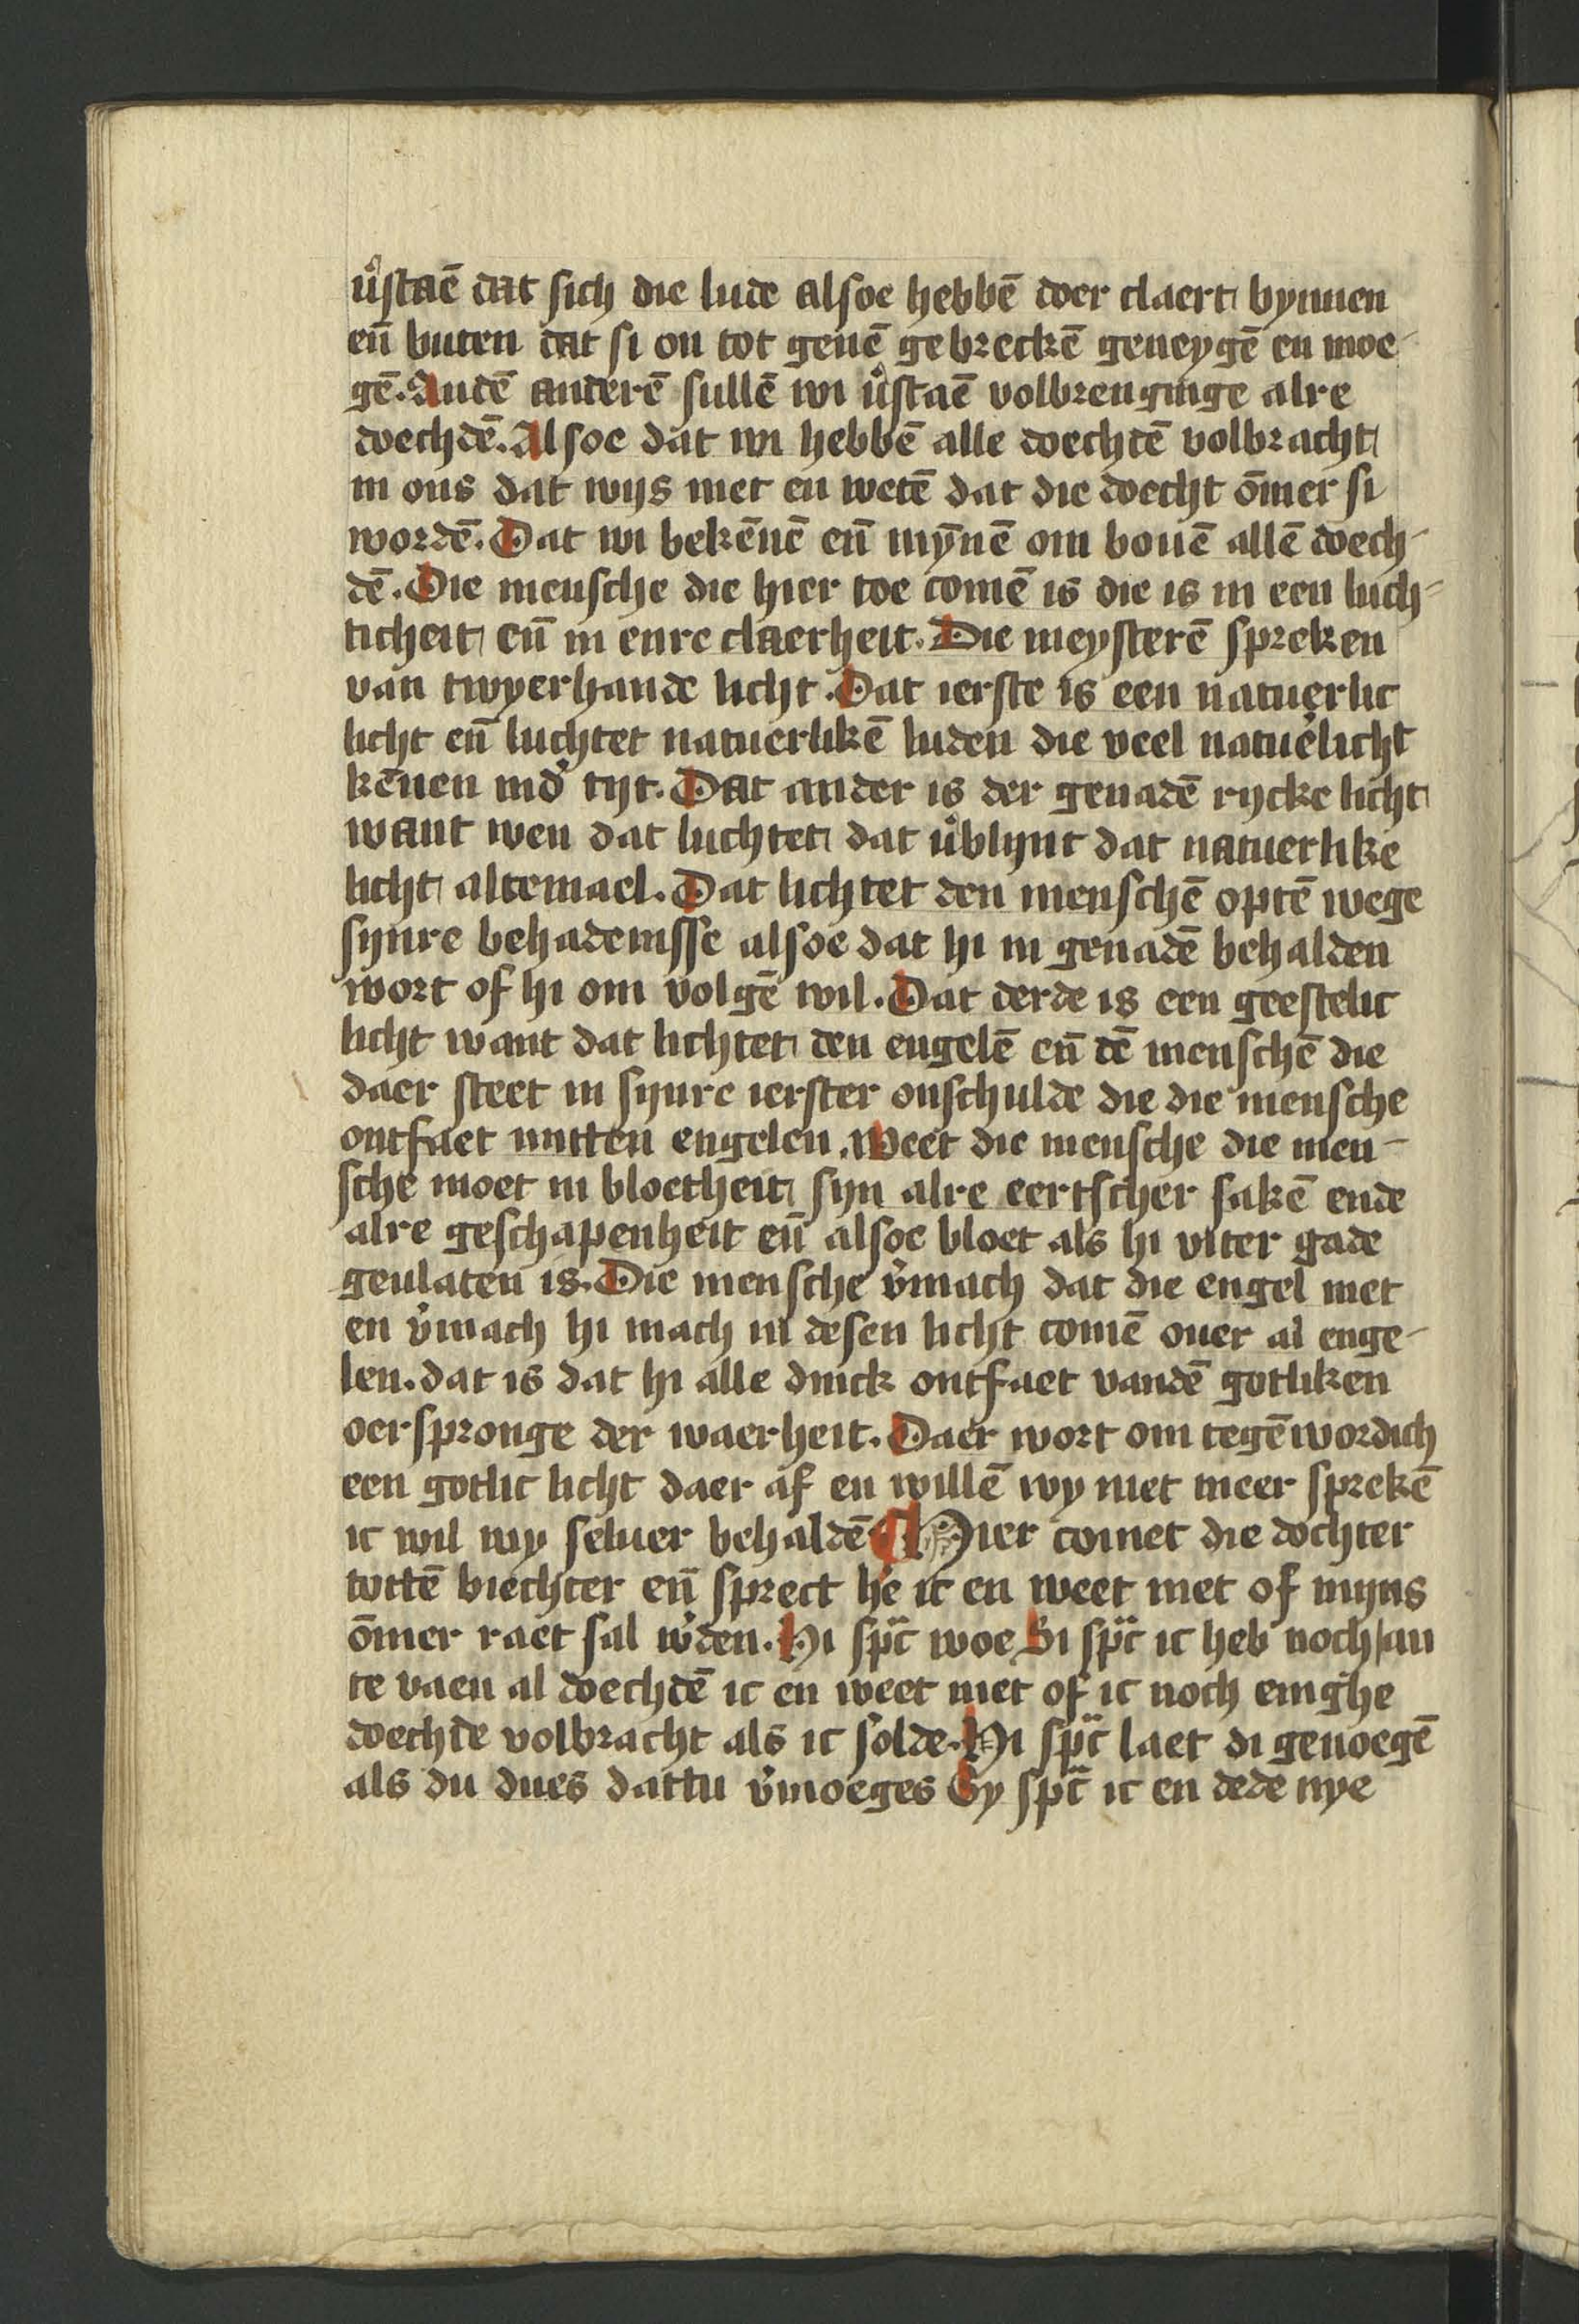 v̉staē dat sich die lude alsoe hebbē doer claert bynnen
en̄ buten dat si on tot genē gebreckē geneygē en moe-
gē. Andē anderē sullē wi v̉staē volbrenginge alre
doechdē. Alsoe dat wi hebbē alle doechdē volbracht
in ons dat wijs niet en wetē dat die doecht ōmer si
wordē. Dat wi bekēnē en̄ mȳnē om bouē allē doech-
dē. Die mensche die hier toe comē is die is in een luch-
ticheit en̄ in enre claerheit. Die meysterē spreken
van twyerhande licht. Dat ierste is een natuerlic
licht en̄ luchtet natuerlikē luden die veel natue̓licht
kēnen ind̓ tijt. Dat ander is der genadē rycke licht
want wen dat luchtet dat v̉blijnt dat natuerlike
licht altemael. Dat lichtet den menschē optē wege
sijnre behadenisse alsoe dat hi in genadē behalden
wort of hi om volgē wil. Dat derde is een geestelic
licht want dat lichtet den engelē en̄ dē menschē die
daer steet in sijnre ierster onschulde die die mensche
ontfaet mitten engelen. Weet die mensche die men-
sche moet in bloetheit sijn alre eertscher sakē ende
alre geschapenheit en̄ alsoe bloet als hi vter gade
geulaten is. Die mensche v̓mach dat die engel niet
en v̓mach hi mach in desen licht comē ouer al enge-
len. dat is dat hi alle dinck ontfaet vandē gotliken
oerspronge der waerheit. Daer wort om tegēwordich
een gotlic licht daer af en willē wy niet meer sprekē
ic wil my seluer behaldē ¶ Hier comet die dochter
tottē biechter en̄ sprect he ic en weet niet of mijns
ōmer raet sal w̓den. Hi sp̄c woe Si sp̄c ic heb noch an
te vaen al doechdē ic en weet niet of ic noch enighe
doechde volbracht als ic solde. Hi sp̄c laet di genoegē
als du dues dattu v̓moeges Sy sp̄c ic en dede nye